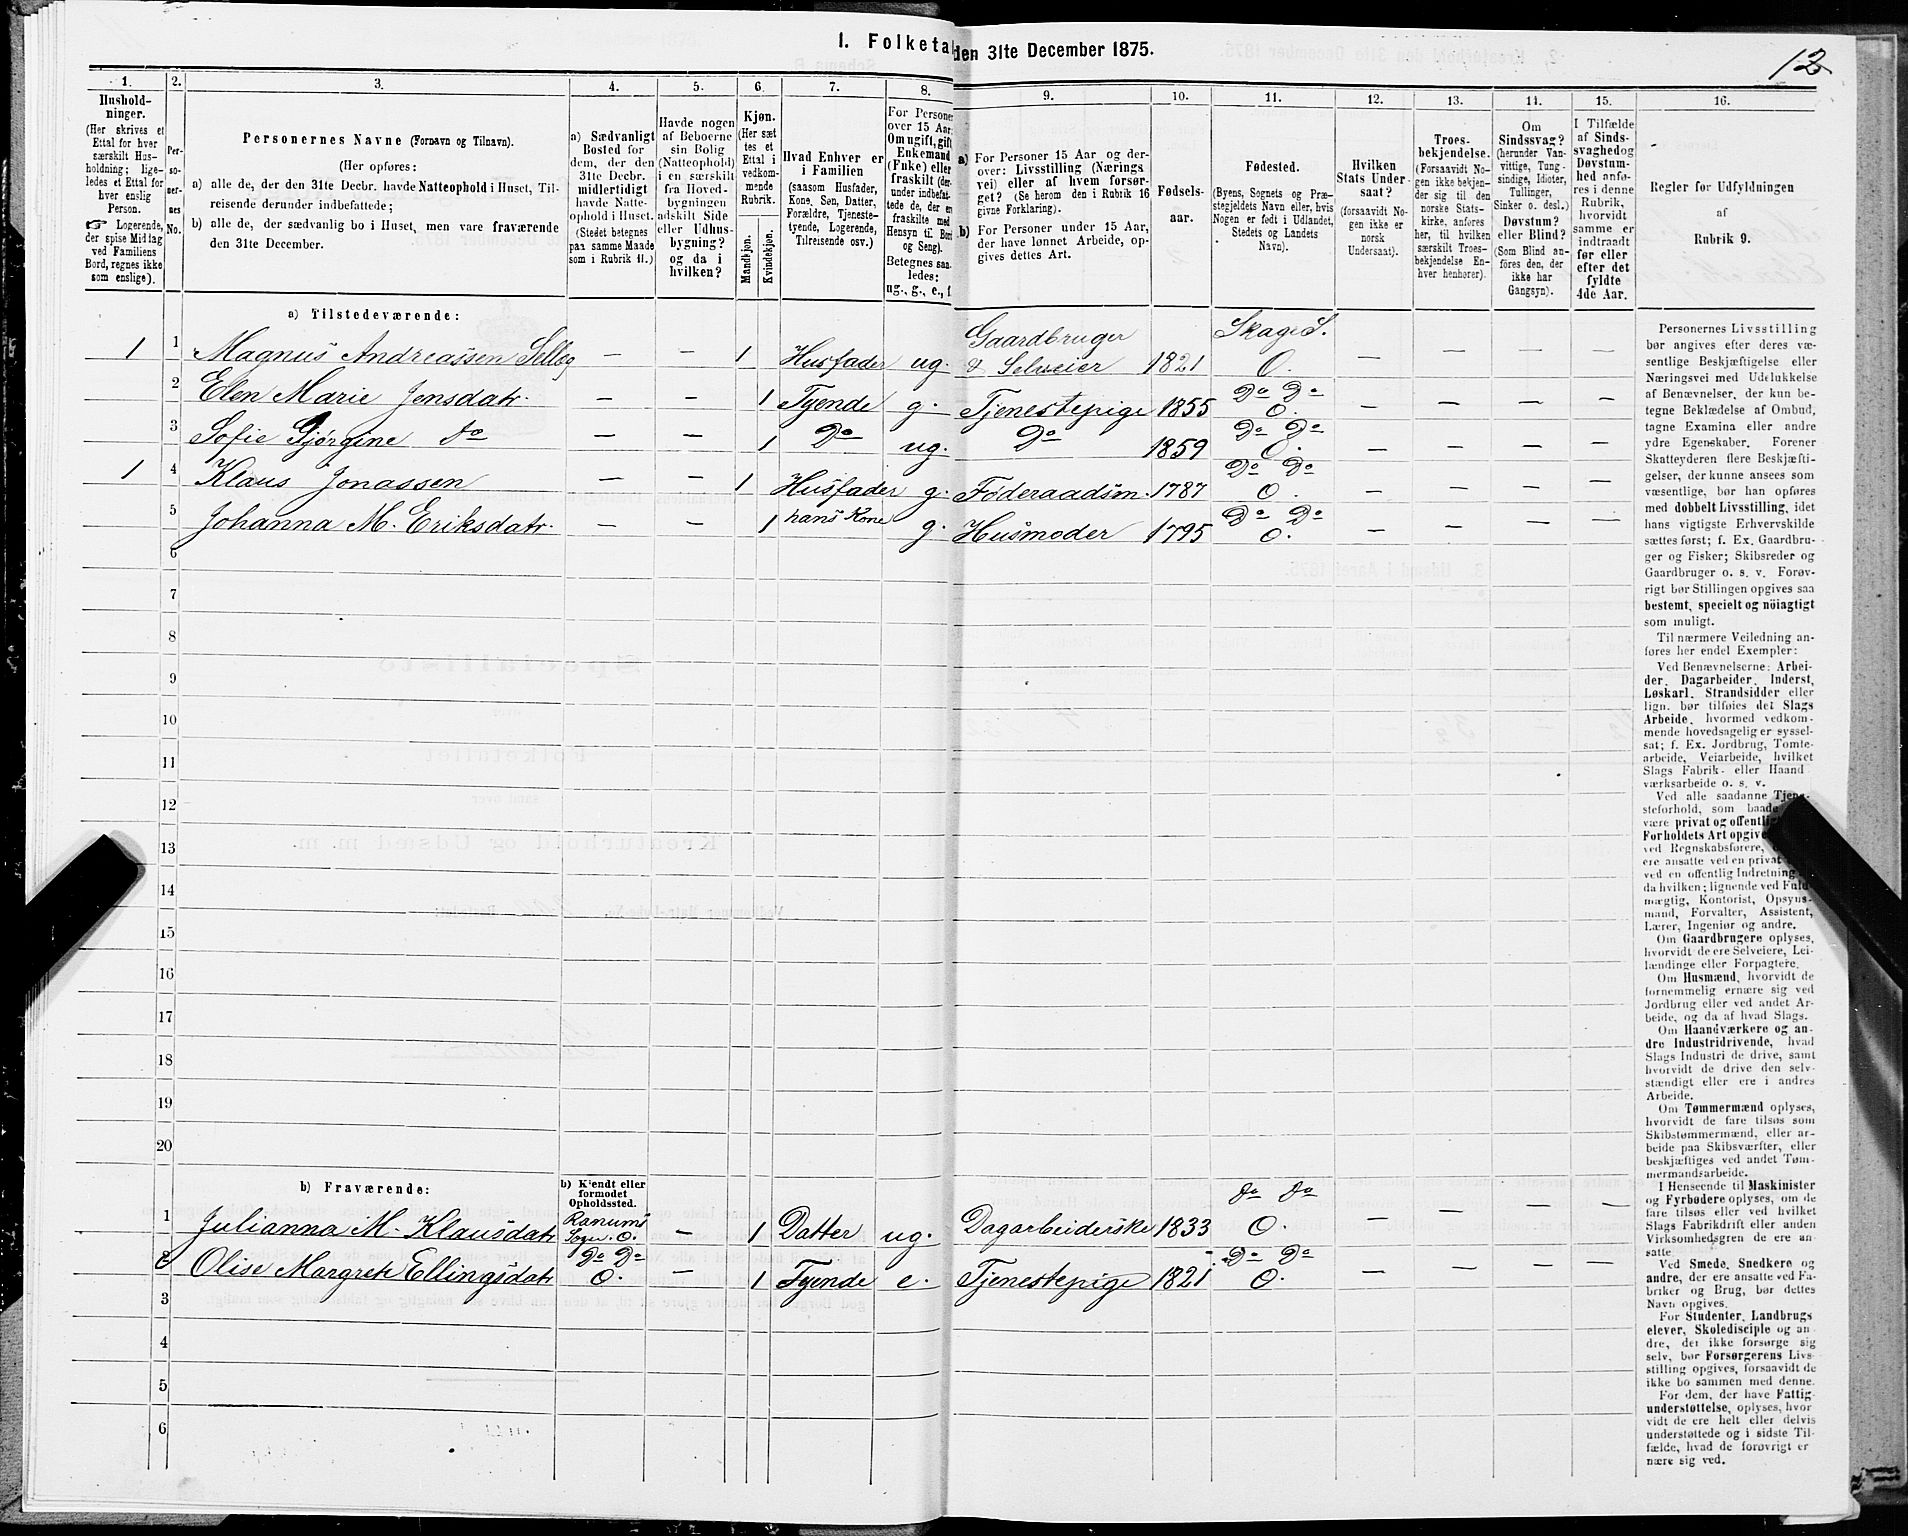 I. Folketa
den 31te December 1875.
12
1.
2.
3.
4.
5.
6.
7.
8.
9.
10.
11.
12.
13.
14.
15.
16.
Hushold-
ninger.
(Her skrives et
Ettal for hver
særskilt Hus-
holdning; lige-
ledes et Ettal for
hver enslig
Person.
☞ Logerende,
der spise Middag
ved Familiens
Bord, regnes ikke
som enslige).
Per-
so-
ner-
nes
No.
Personernes Navne (Fornavn og Tilnavn).
(Her opføres:
a) alle de, der den 31te Decbr. havde Natteophold i Huset, Til-
reisende derunder indbefattede;
b) alle de, der sædvanlig bo i Huset, men vare fraværende
den 31te December.
a) Sædvanligt
Bosted for
dem, der den
31te Decbr.
midlertidigt
havde Natte-
ophold i Huset.
(Stedet betegnes
paa samme Maade
som i Rubrik 11.)
Havde nogen
af Beboerne
sin Bolig
(Natteophold)
i en særskilt
fra Hoved-
bygningen
adskilt Side
eller Udhus-
bygning?
og da i
hvilken?
Kjøn.
(Her sæt
tes et
Ettal i
vedkom-
mende
Rubrik.
Mandkjøn.
Kvindekjøn.
Hvad Enhver er
i Familien
(saasom Husfader,
Kone, Søn, Datter,
Forældre, Tjeneste-
tyende, Logerende,
Tilreisende osv.)
For Persone
over 15 Aar:
Om ugift, gift
Enkemand
(Enke) eller
fraskilt (der-
under indbefat-
tede de, der er
fraskilte med
Hensyn til Bord
og Seng).
Betegnes saa
ledes:
ug., g., e., f.
a) For Personer 15 Aar og der-
over: Livsstilling (Nærings
vei) eller af hvem forsør-
get? (Se herom den i Rubrik 16
givne Forklaring).
b) For Personer under 15 Aar,
der have lønnet Arbeide, op-
gives dettes Art.
Fødsels-
aar.
Fødested.
(Byens, Sognets og Præ-
stegjeldets Navn eller, hvis
Nogen er født i Udlandet,
Stedets og Landets
Navn).
Hvilken
Stats Under-
saat?
(forsaavidt No-
gen ikke er
norsk
Undersaat).
Troes-
bekjendelse.
(Forsaavidt No-
gen ikke bekjen-
der sig til den
norske Stats-
kirke, anføres
her, til hvilken
særskilt Troes-
bekjendelse En-
hver henhører).
Om
Sindssvag?
(herunder Van-
vittige, Tung-
sindige, Idioter,
Tullinger,
Sinker o. desl.)
Døvstum?
eller Blind?
(Som Blind an-
føres den, der
ikke har
Gangsyn).
I Tilfælde
af Sinds-
svaghed og
Døvstum-
hed anfø-
res i denne
Rubrik,
hvorvidt
samme er
indtraadt
før eller
efter det
fyldte
4de Aar.
Regler for Udfyldningen
af
Rubrik 9.
a) Tilstedeværende:
1 1 Magnus Andreassen Selbeg — — 1 Husfader ug. Gaardbruger & Selveier 1821 Skage S. O. — — — —
2 Elen Marie Jensdatr. — — 1 Tyende g. Tjenestepige 1855 Do Do O. — — — —
3 Sofie Gjørgine do — — 1 Do ug. Do 1859 Do Do O. — — — —
1 4 Klaus Jonassen — — 1 Husfader g. Føderaadsm. 1787 Do Do O. — — — —
5 Johanna M. Eriksdatr. — — 1 hans Kone g. Husmoder 1795 Do Do O. — — — —
6
7
8
9
10
11
12
13
14
15
16
17
18
19
20
b) Fraværende:
b) Kjendt eller
formodet
Opholdssted.
1 Julianna M. Klausdatr Ranums Sogn. O. — 1 Datter ug. Dagarbeiderske 1833 do do O. — — — —
2 Olise Margrete Ellingsdatr Do Do O. — 1 Tyende e. Tjenestepige 1821 Do Do O. — — — —
3
4
5
6
Personernes Livsstilling
bør angives efter deres væ-
sentlige Beskjæftigelse eller
Næringsvei med Udelukkelse
af Benævnelser, der kun be-
tegne Beklædelse af Ombud,
tagne Examina eller andre
ydre Egenskaber. Forener
Skatteyderen flere Beskjæfti-
gelser, der kunne ansees som
væsentlige, bør han opføres
med dobbelt Livsstilling, idet
hans vigtigste Erhvervskilde
sættes først; f. Ex. Gaardbru-
ger og Fisker; Skibsreder og
Gaardbruger o. s. v. Forøv-
rigt bør Stillingen opgives saa
bestemt, specielt og nöiagtigt
som muligt.
Til nærmere Veiledning an-
føres her endel Exempler:
Ved Benævnelserne: Arbei-
der, Dagarbeider, Inderst,
Løskarl, Strandsidder eller
lign. bør tilføies det Slags
Arbeide, hvormed vedkom-
mende hovedsagelig er syssel-
sat; f. Ex. Jordbrug, Tomte-
arbeide, Veiarbeide, hvilket
Slags Fabrik- eller Haand
værksarbeide o. s. v.
Ved alle saadanne Tjene-
steforhold, som baade
være privat og offentlig
Forholdets Art opgive
ved Regnskabsførere,
ere ansatte ved en privat
ved en offentlig Indretning
da hvilken; lignende ved Fuld-
mægtig, Kontorist, Opsyns-
mand, Forvalter, Assistent,
Lærer, Ingeniør og andre.
Om Gaardbrugere oplyses,
hvorvidt de ere Selveiere, Lei-
lændinge eller Forpagtere.
Om Husmænd, hvorvidt de
fornemmelig ernære sig ved
Jordbrug eller ved andet Ar-
beide, og da af hvad Slags.
Om Haandværkere og an-
dre Industridrivende, hvad
Slags Industri de drive, samt
hvorvidt de drive den selv-
stændigt eller ere i andres
Arbeide.
Om Tømmermænd oplyses,
hvorvidt de fare tilsøs som
Skibstømmermænd, eller ar-
beide paa Skibsværfter, eller
beskjæftiges ved andet Tøm-
mermandsarbeide.
I Henseende til Maskinister
og Fyrbødere oplyses, om de
fare tilsøs eller ved hvilket
Slags Fabrikdrift eller anden
Virksomhedsgren de ere an-
satte
Ved Smede, Snedkere og
andre, der ere ansatte ved Fa-
briker og Brug, bør dettes
Navn opgives.
For Studenter, Landbrugs
elever, Skoledisciple og an-
dre, der ikke forsørge sig
selv, bør Forsørgerens Livs-
stilling opgives, forsaavidt de
ikke bo sammen med denne.
For dem, der have Fattig-
understøttelse, oplyses, hvor
vidt de ere helt eller delvis
understøttede og i sidste Til-
fælde, hvad de forøvrigt er
nære sig ved.